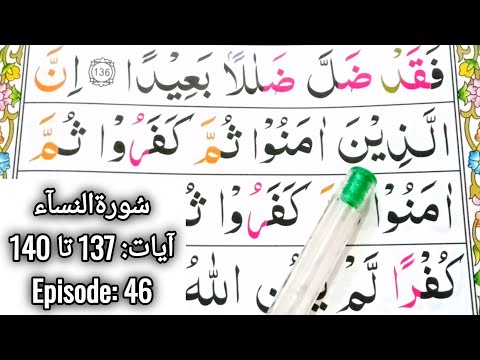 فَقَدْ ضَلَّ ضَلٰلًاۢ بَعِيْدًا ﴿136﴾ اِنَّ
الَّذِيْنَ اٰمَنُوْا ثُمَّ كَفَرُوْا ثُمَّ
اٰمَنُوْا كَفَرُوْا
كُفْرًا لَّمْ اللّٰهُ
سُورةالنسآء
آیات: 137 تا 140
Episode: 46